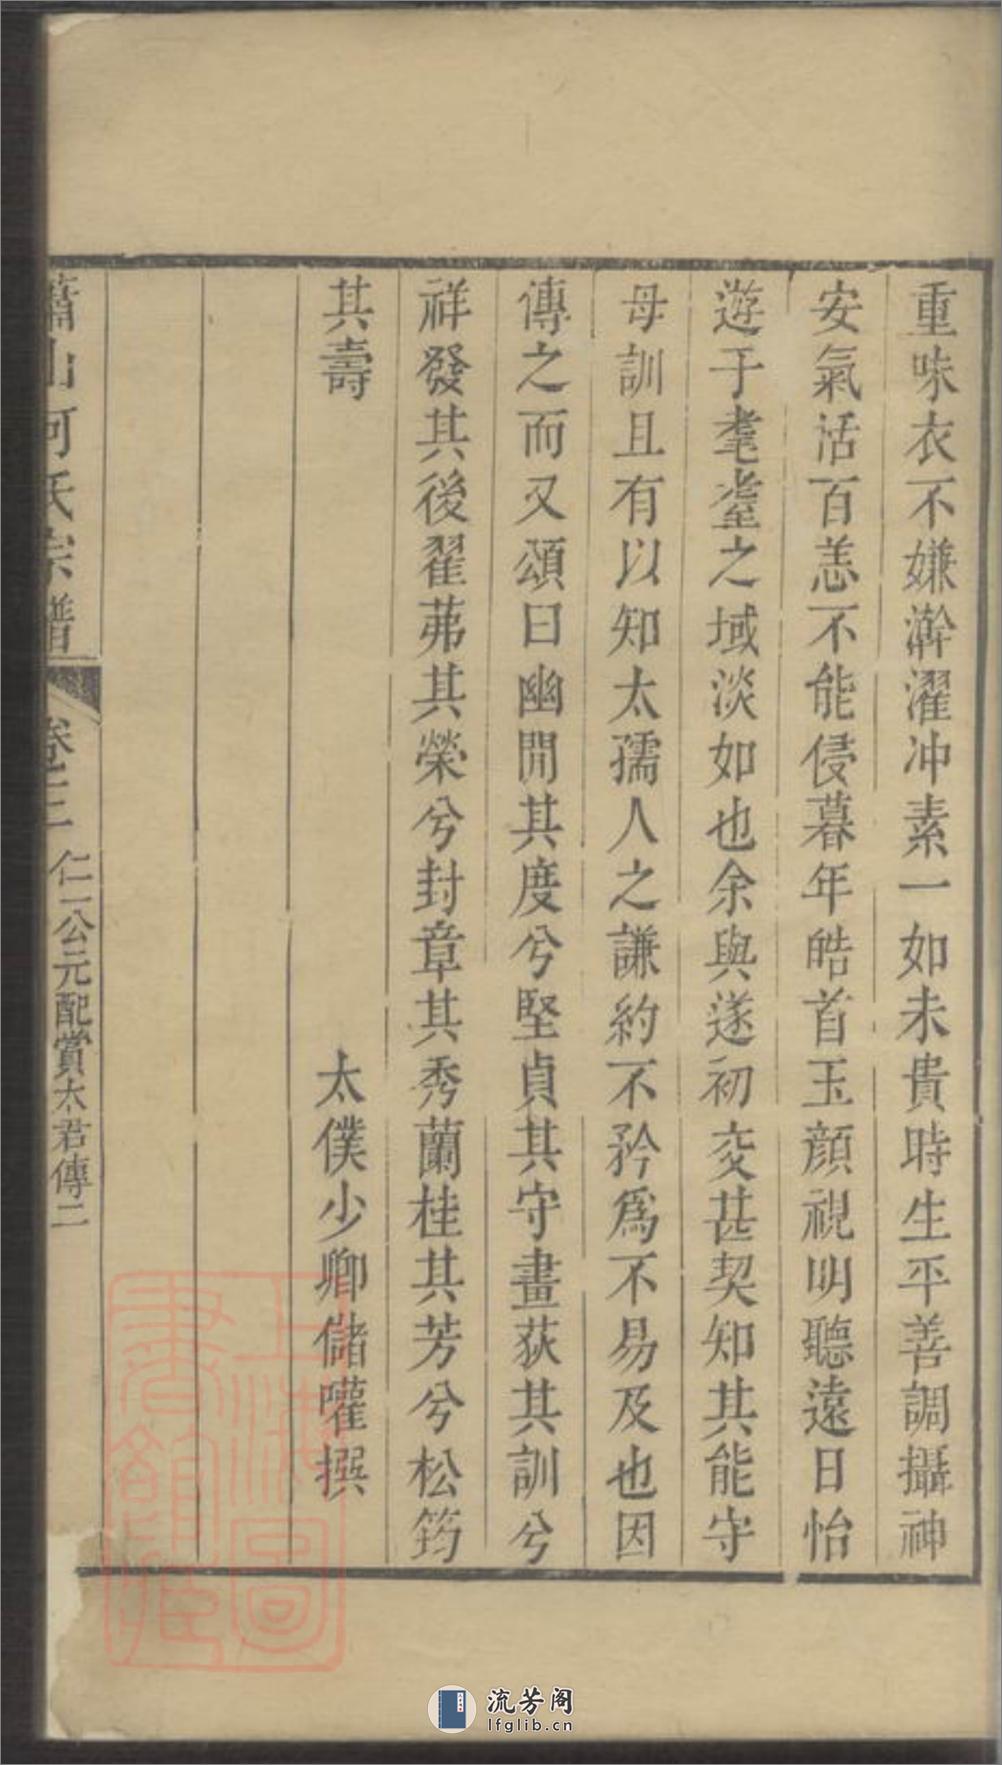 重味衣不嫌澣濯冲素一如未貴時生平善調攝神
安氣活百恙不能侵暮年皓首玉顔視明聽遠日怡
遊于耄耋之域淡如也余與遂初交甚契知其能守
母訓且有以知太孺人之謙約不矜爲不易及也因
傳之而又頌曰幽閒其度兮堅貞其守畫荻其訓兮
祥發其後翟茀其榮兮封章其秀蘭桂其芳兮松筠
其壽
太僕少卿儲嚾撰
蕭山何氏宗譜
卷三
仁一公元配賞太君傳二
上海圖書館藏
流芳阁
lfglib.cn